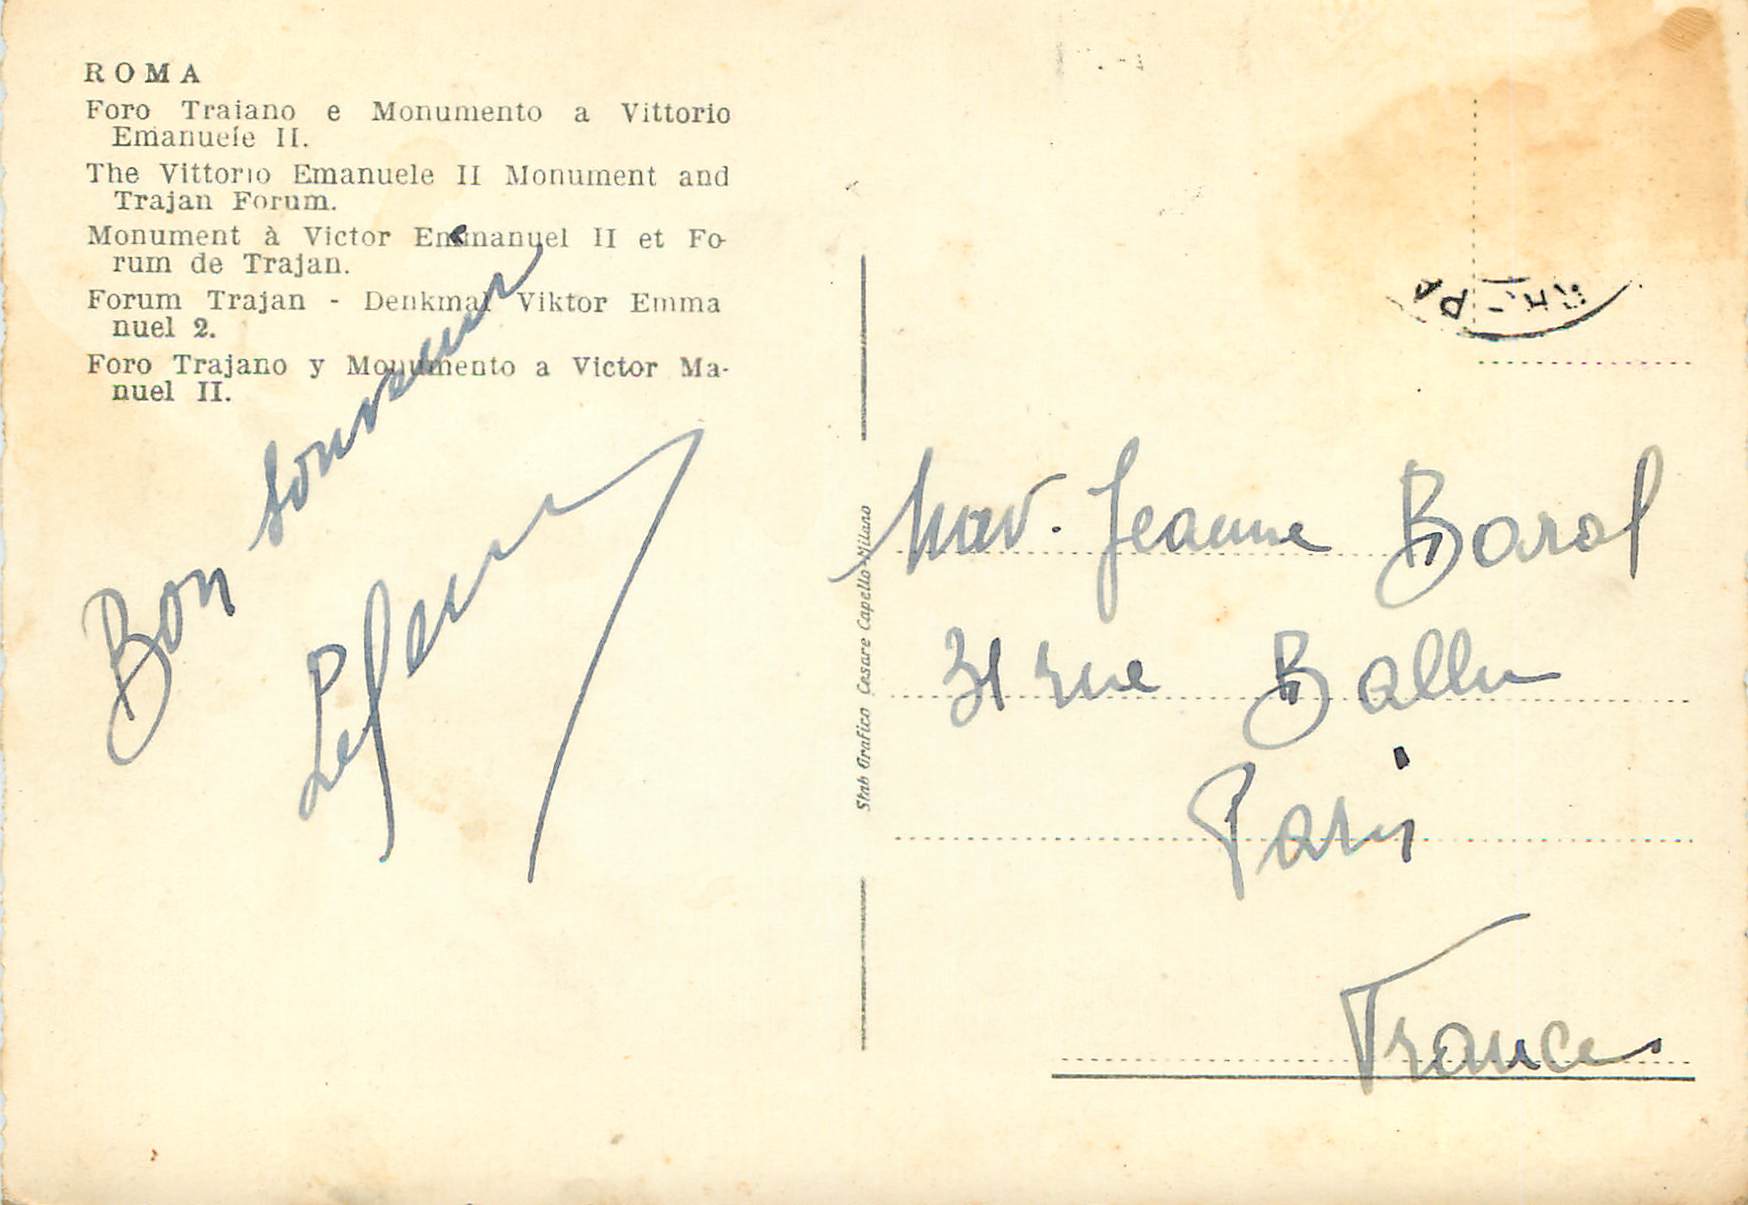 ROMA
Foro Traiano e Monumento a Vittorio
Emanuele II.
The Vittorio Emanuele II Monument and
Trajan Forum.
Monument à Victor Emmanuel II et Fo-
rum de Trajan.
Forum Trajan - Denkmal Viktor Emma
nuel 2.
Foro Trajano y Monumento a Victor Ma-
nuel II.
Bon souvenir
Stab Grafico Cesare Capello-Milano
Jeanne
31 rue Ballu
Paris
France